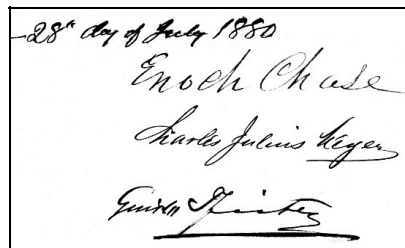 28th day of July 1880
Enoch Chase
Charles Julius Meyer
Guido Pfister